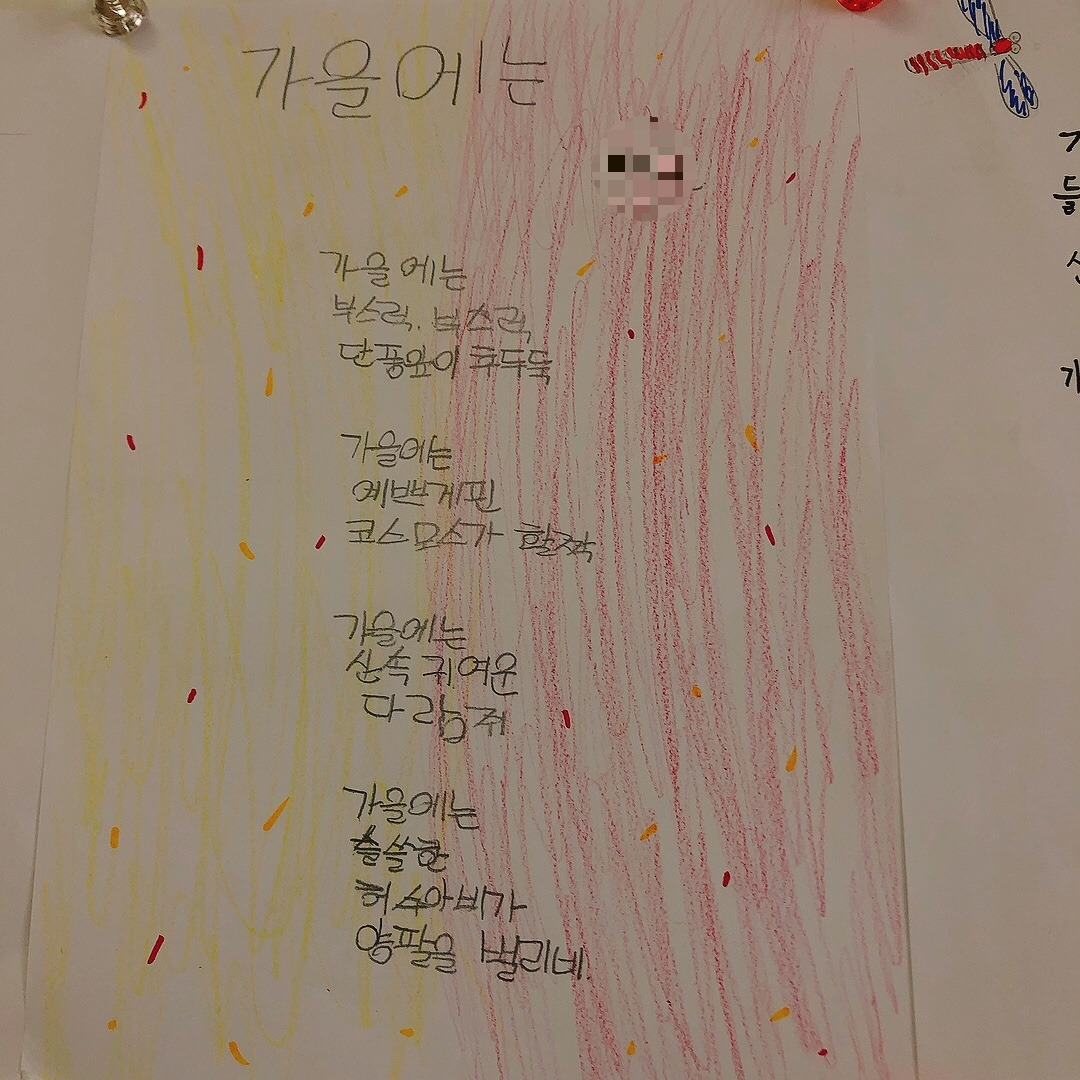 가을에는
가을에는
부스럭, 부스럭
단풍잎이 후두둑
가을에는
예쁘게핀
코스모스가 활짝
가을에는
산속 귀여운
다람쥐
가을에는
쓸쓸한
허수아비가
양팔을 벌리네.
들